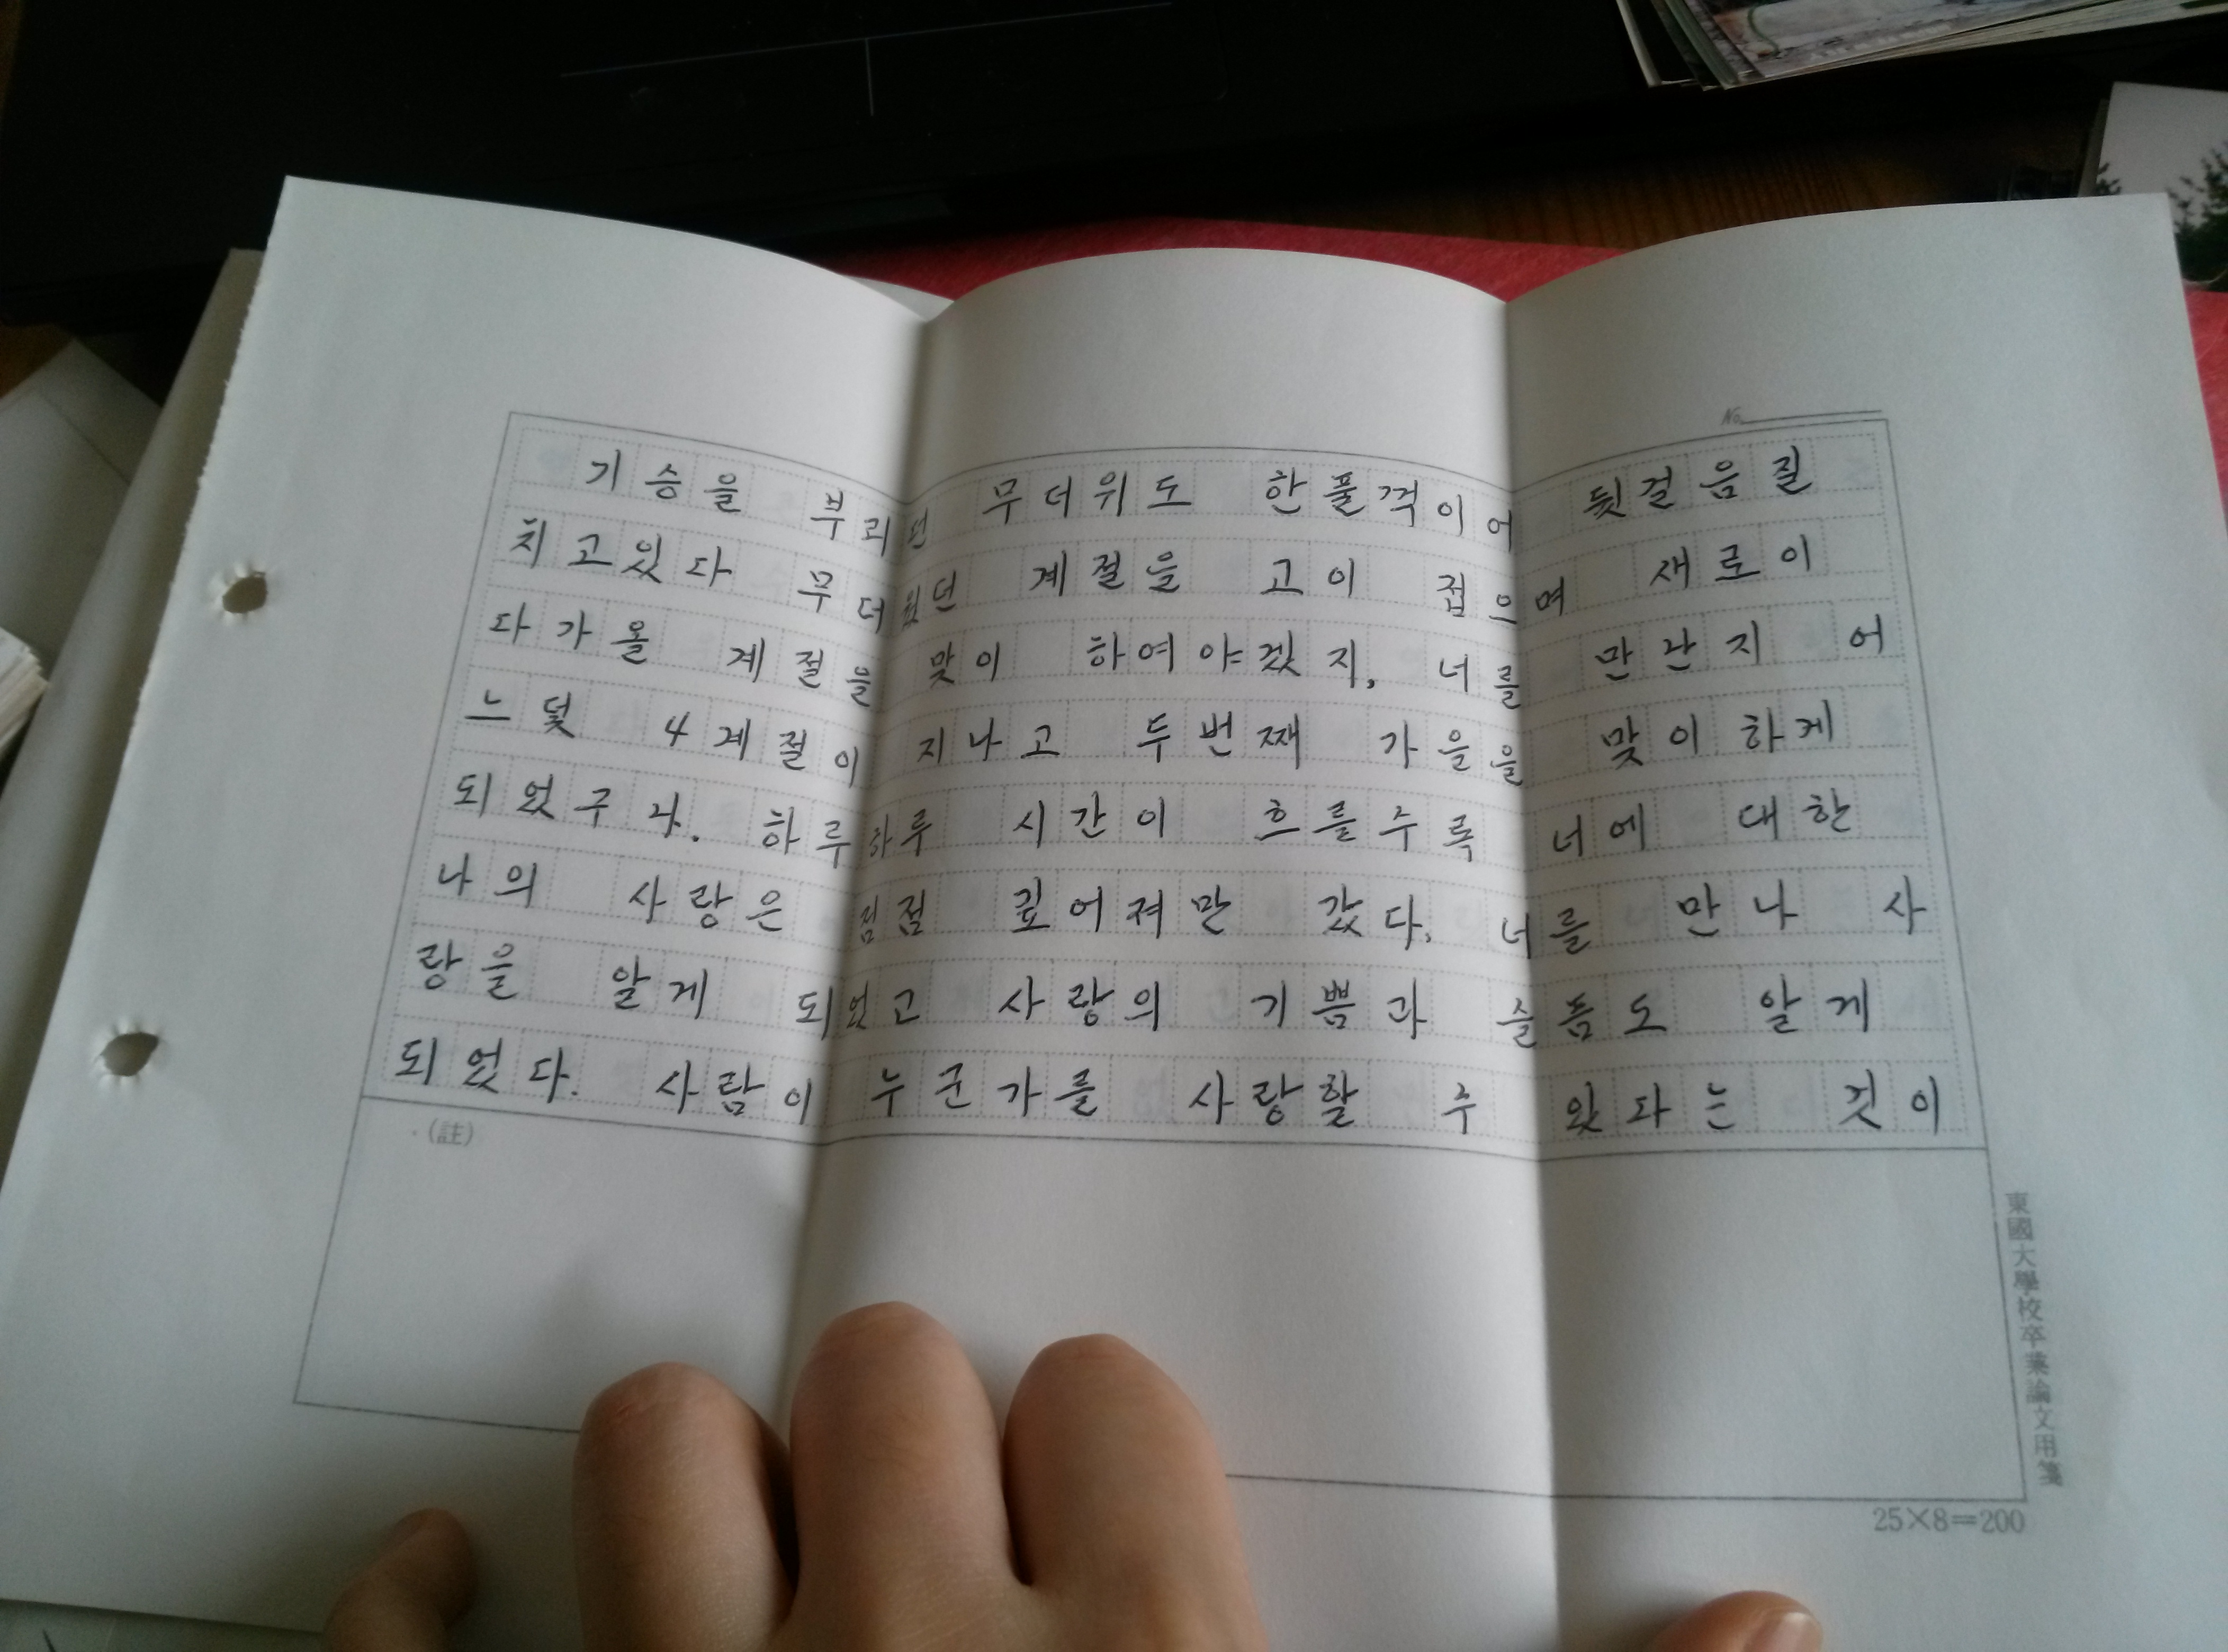 No.
기승을 부리던 무더위도 한풀꺽이어 뒷걸음질
치고있다 무더웠던 계절을 고이 접으며 새로이
다가올 계절을 맞이 하여야겠지, 너를 만난지 어
느덫 4계절이 지나고 두번째 가을을 맞이하게
되었구나. 하루하루 시간이 흐를수록 너에 대한
나의 사랑은 점점 깊어져만 갔다, 너를 만나 사
랑을 알게 되었고 사랑의 기쁨과 슬픔도 알게
되었다. 사람이 누군가를 사랑할 수 있다는 것이
(註)
東國大學校卒業論文用箋
25×8=200